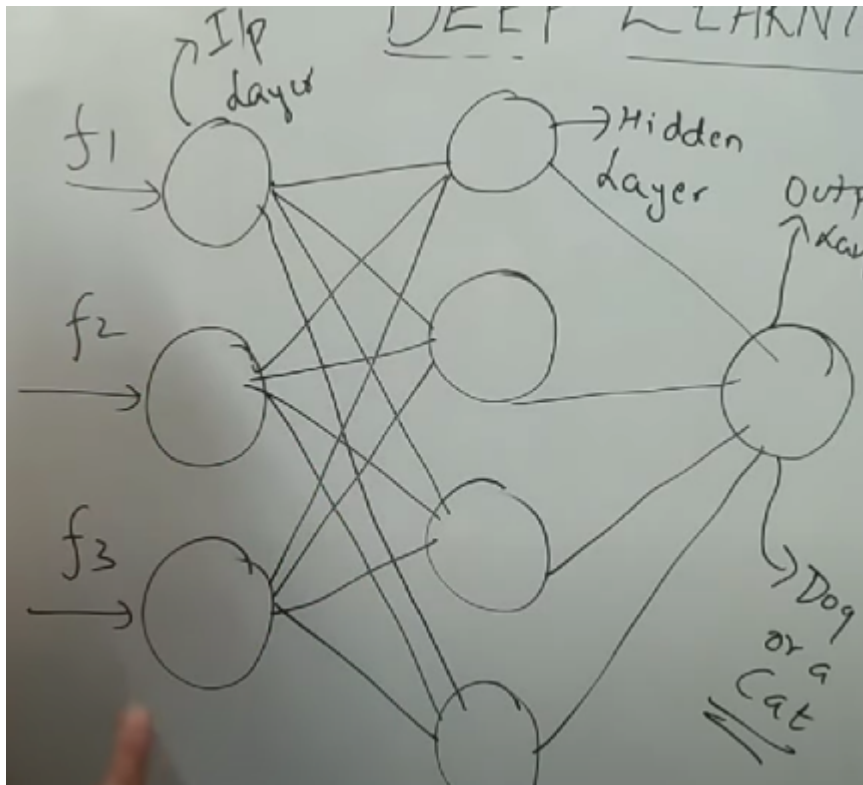 DEEP LEARNI
I/p
Layer
f1
Hidden
Layer
Outp
Lay
f2
f3
Dog
or a
Cat